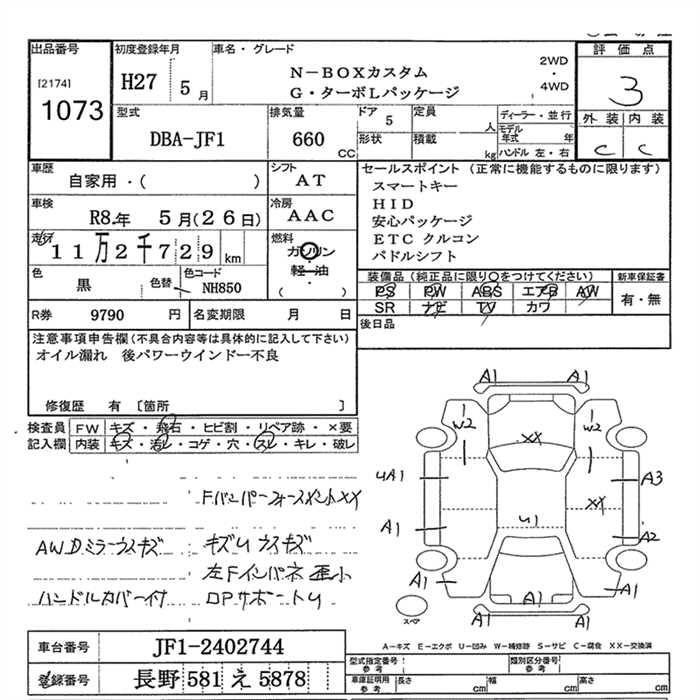 出品番号
[2174]
1073
初度登録年月
H27 5 月
車名・グレード
N－BOXカスタム
G・ターボLパッケージ
2WD
・
4WD
評 価 点
3
外 装 内 装
C C
型式
DBA-JF1
排気量
660 CC
ドア 5
形状
定員 人
積載 kg
ディーラー・並行
モデル年式 年
ハンドル 左・右
車歴
自家用・( )
シフト
AT
車検
R8.年 5月(26日)
冷房
AAC
走行
11万2千729 km
燃料
ガソリン
軽・油
・
( )
色
黒
色替
色コード
NH850
R券 9790 円
名変期限 月 日
セールスポイント (正常に機能するものに限ります)
スマートキー
HID
安心パッケージ
ETC クルコン
パドルシフト
装備品(純正品に限り○をつけてください)
PS PW ABS エアB AW
SR ナビ TV カワ
新車保証書
有・無
後日品
注意事項申告欄(不具合内容等は具体的に記入して下さい)
オイル漏れ 後パワーウインドー不良
修復歴 有 〔箇所 〕
検査員記入欄
FW キズ・飛石・ヒビ割・リペア跡・×要
内装 キズ・汚レ・コゲ・穴・スレ・キレ・破レ
FバンパーフォースメントXX
AWDミラーウスキズ キズUウスキズ
左Fインパネ歪小
ハンドルカバー付 DPサポートU
A1 A1
W2 W2
XX
UA1 A3
XX
A1 U1 A2
A1 A1 A1
スペア
A1 A1
A－キズ E－エクボ U－凹み W－補修跡 S－サビ C－腐食 XX－交換済
車台番号 JF1-2402744
登録番号 長野 581 え 5878
型式指定番号
参考
類別区分番号
参考
車庫証明用
参考
長さ cm
幅 cm
高さ cm